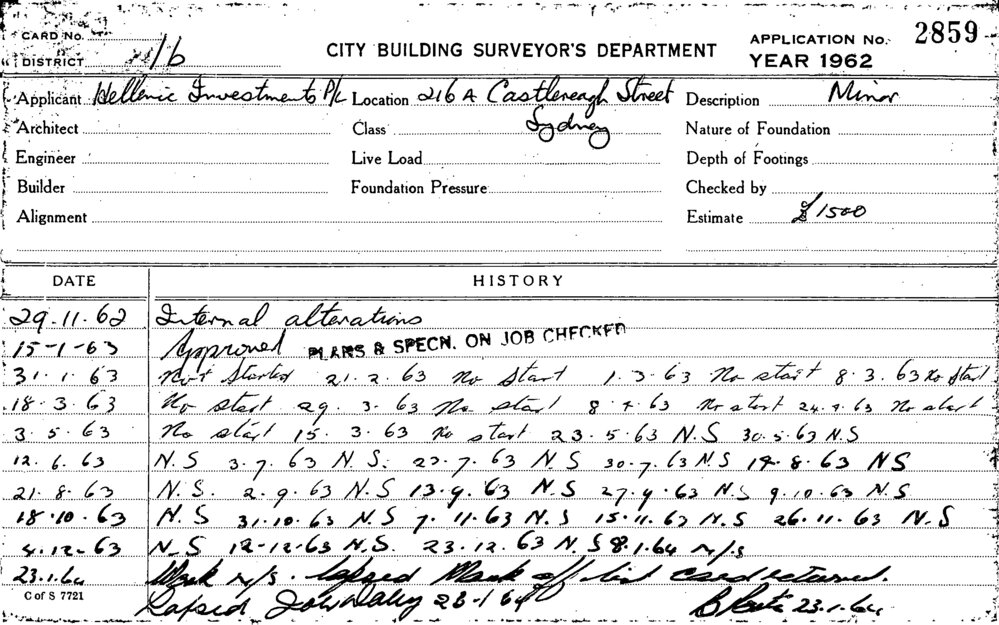 CARD No.
DISTRICT 1/6
CITY BUILDING SURVEYOR'S DEPARTMENT
APPLICATION No. 2859
YEAR 1962
Applicant Hellenic Investments P/L Location 216A Castlereagh Street Description Minor
Architect Class Sydney Nature of Foundation
Engineer Live Load Depth of Footings
Builder Foundation Pressure Checked by
Alignment Estimate £1500
DATE HISTORY
29.11.62 Internal alterations
15-1-63 Approved PLANS & SPECN. ON JOB CHECKED
31.1.63 Not Started 21.2.63 No Start 1.3.63 No start 8.3.63 No start
18.3.63 No start 29.3.63 No start 8.4.63 No start 24.4.63 No start
3.5.63 No start 15.3.63 No start 23.5.63 N.S 30.5.63 N.S
12.6.63 N.S 3.7.63 N.S. 23.7.63 N.S 30.7.63 N.S 14.8.63 NS
21.8.63 N.S. 2.9.63 N.S 13.9.63 N.S 27.9.63 N.S 9.10.63 N.S
18.10.63 N.S 31.10.63 N.S 7.11.63 N.S 15.11.63 N.S 26.11.63 N.S
4.12-63 N-S 12-12-63 N.S. 23.12.63 N.S 8.1.64 N/S
23.1.64 Work N/S. lapsed Mark off list card returned.
C of S 7721
Lapsed John Daley 23-1-64 23.1.64